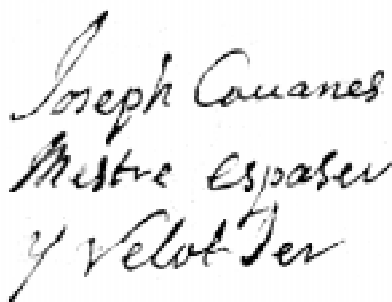 Joseph Couanes
Mestre Espaser
y Velot Ter